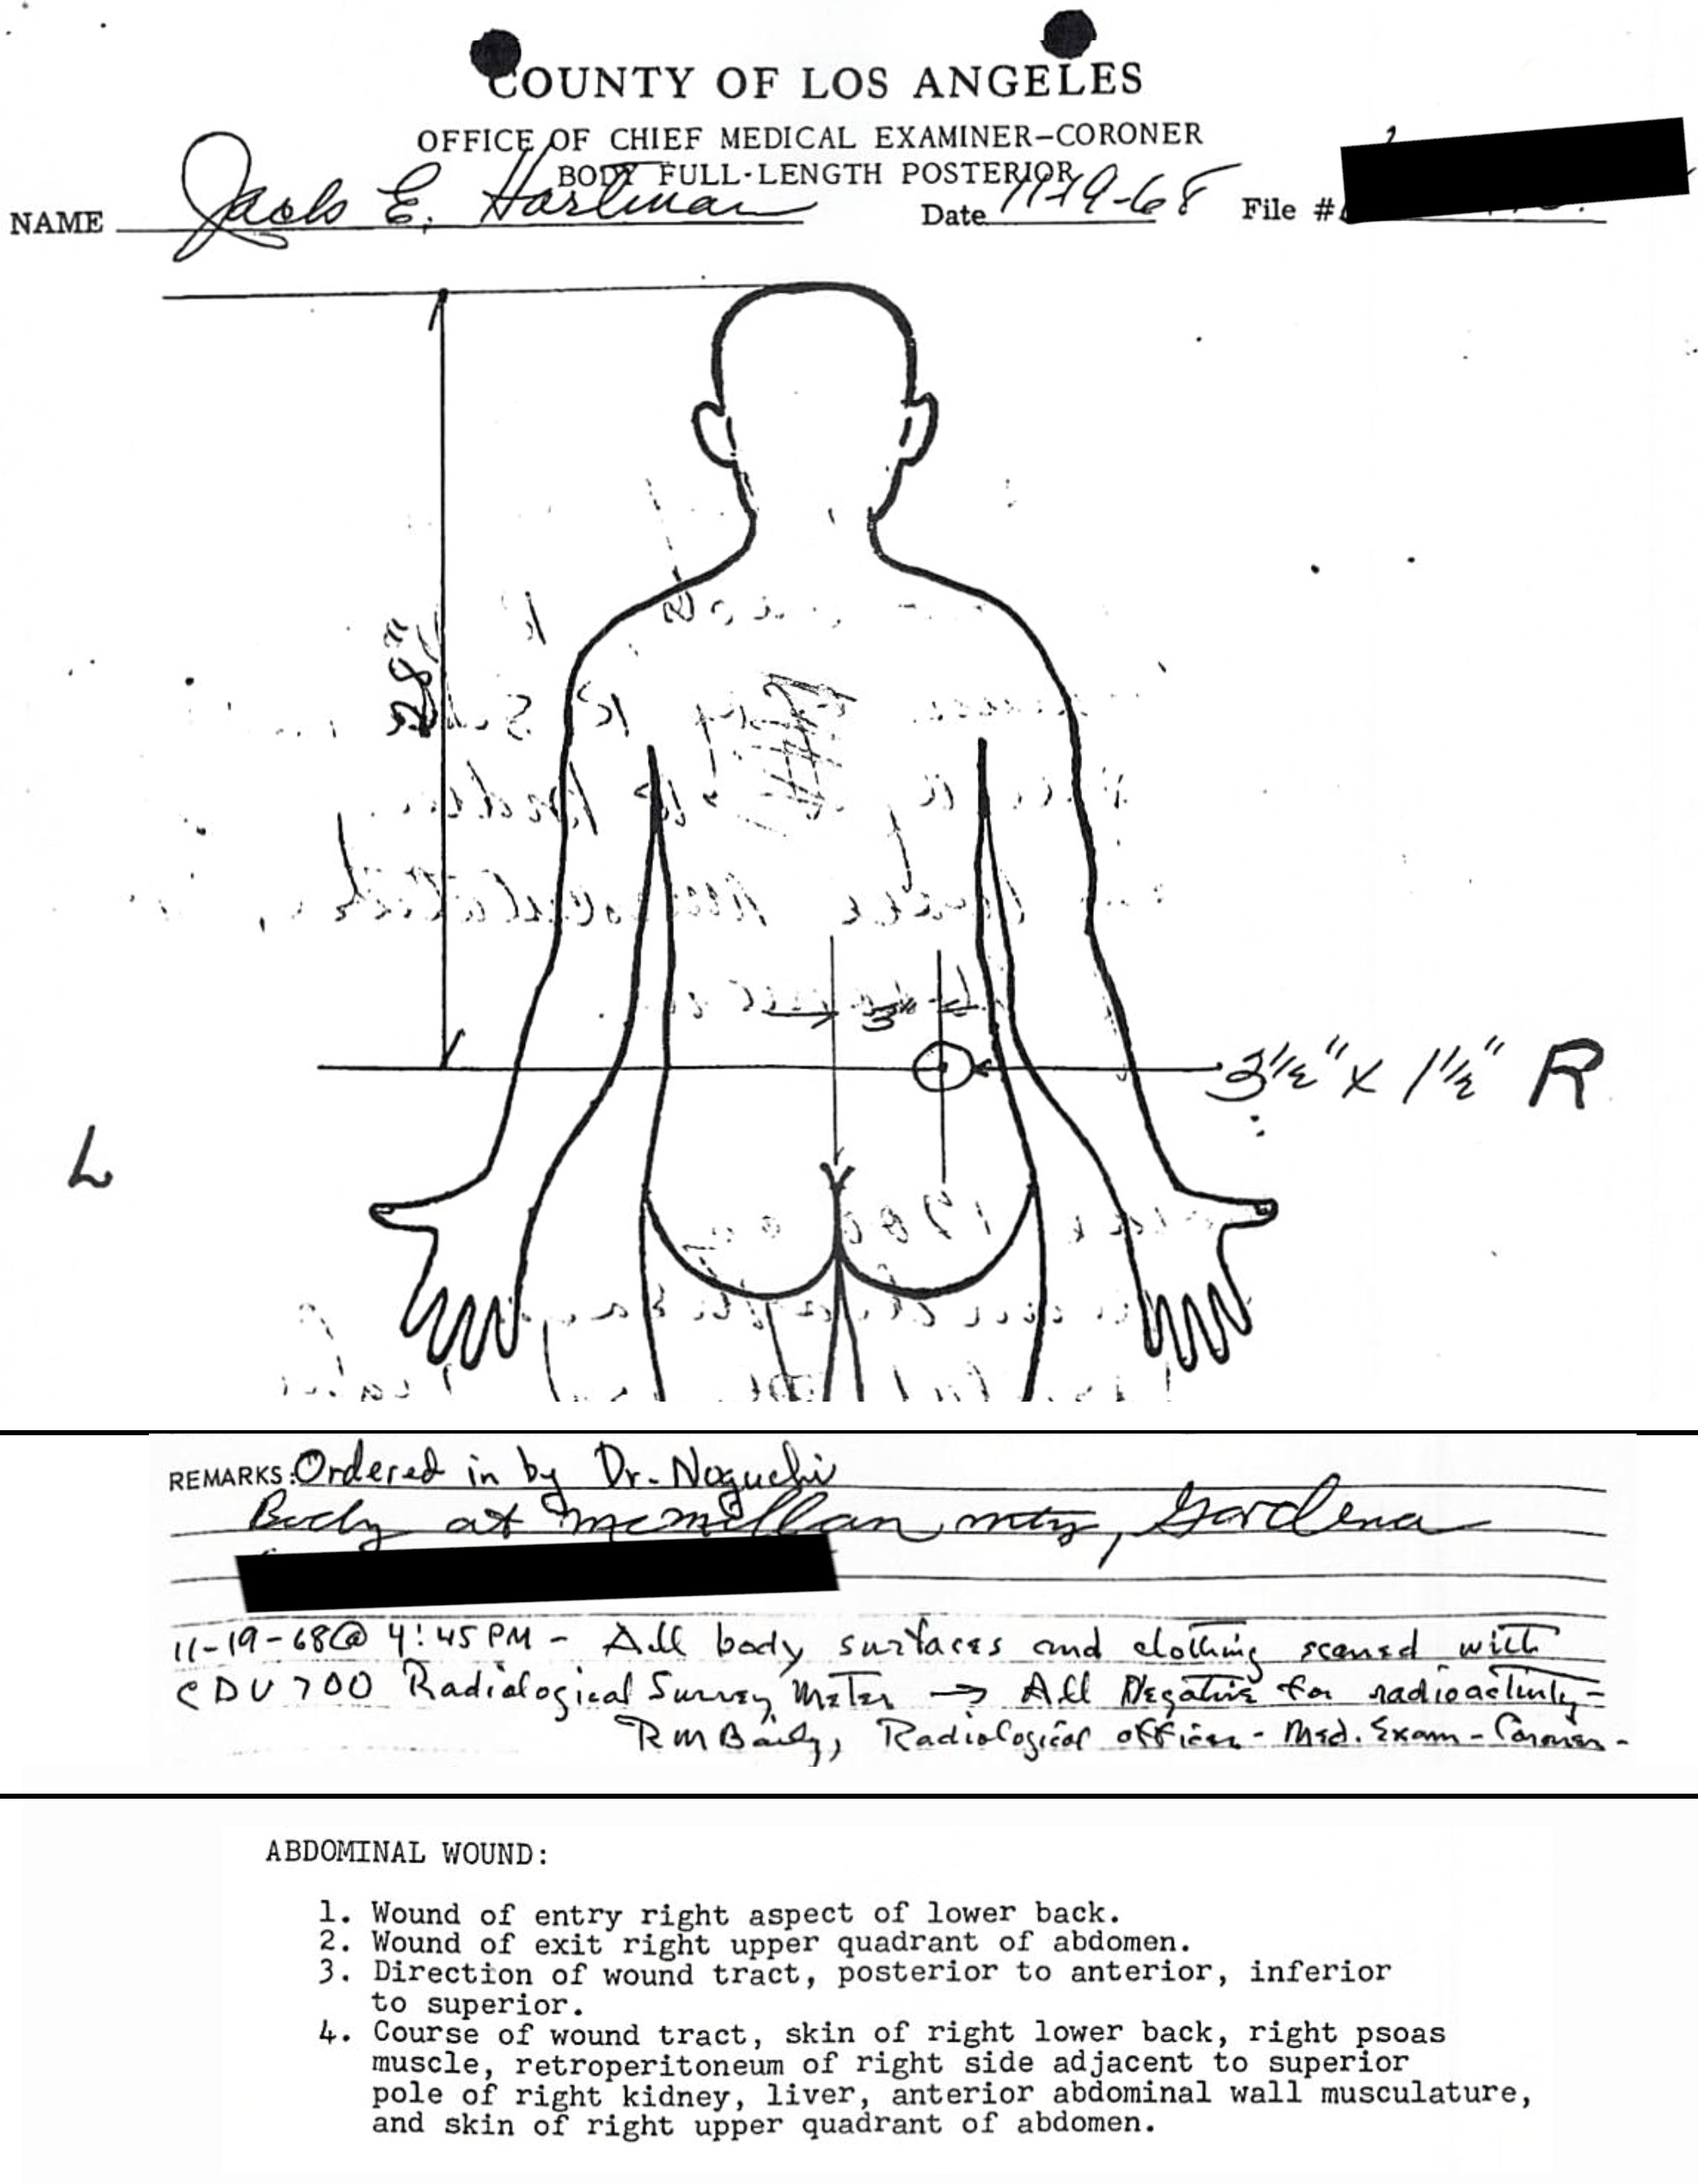 COUNTY OF LOS ANGELES
OFFICE OF CHIEF MEDICAL EXAMINER-CORONER
BODY FULL-LENGTH POSTERIOR
NAME Jack E. Hartman Date 11-19-68 File #
28"
3"
3½" x 1½" R
L
REMARKS: Ordered in by Dr. Noguchi
Body at McMillan mty, Gardena
11-19-68 @ 4:45 PM - All body surfaces and clothing scaned with
CDV 700 Radiological Survey Meter → All Negative for radioactivity -
RM Baily, Radiological officer - Med. Exam - Coroner -
ABDOMINAL WOUND:
1. Wound of entry right aspect of lower back.
2. Wound of exit right upper quadrant of abdomen.
3. Direction of wound tract, posterior to anterior, inferior
to superior.
4. Course of wound tract, skin of right lower back, right psoas
muscle, retroperitoneum of right side adjacent to superior
pole of right kidney, liver, anterior abdominal wall musculature,
and skin of right upper quadrant of abdomen.